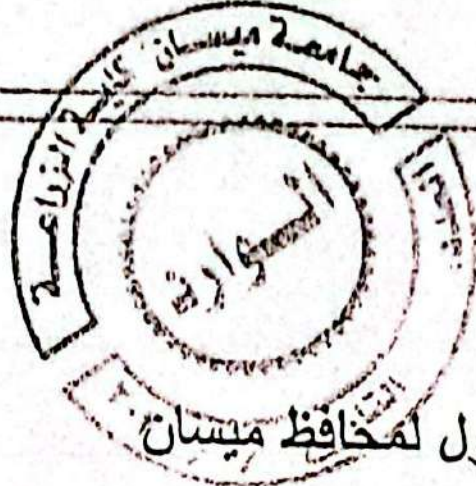 جامعة ميسان كلية الزراعة
الواردة
ل لمحافظ ميسان